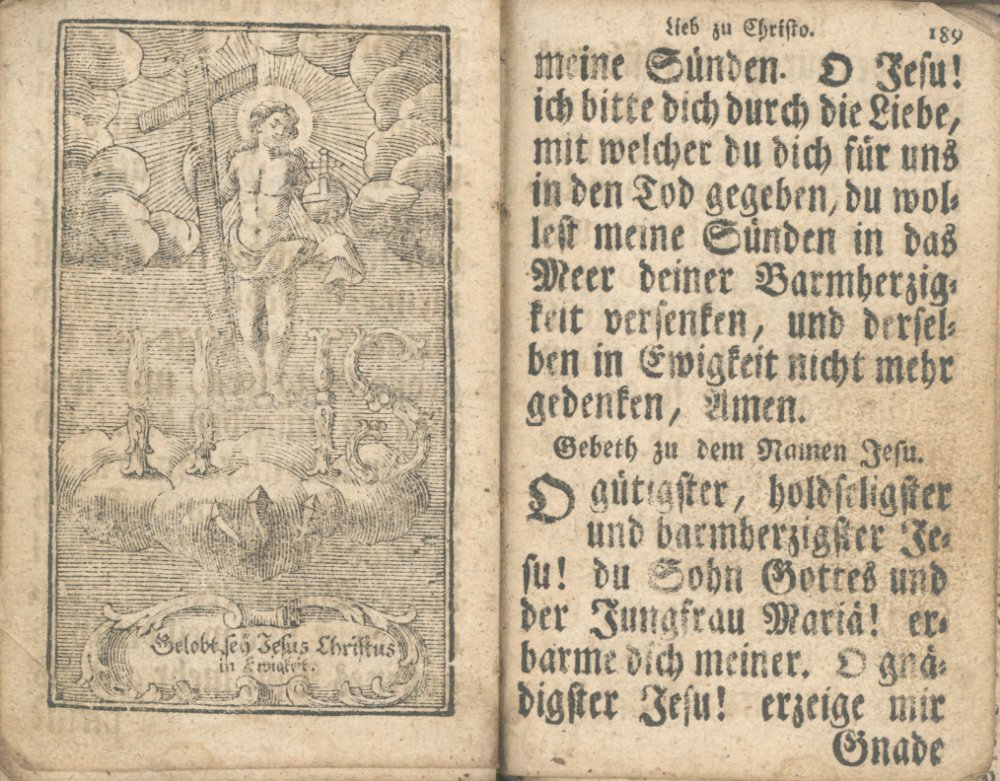 IHS
Gelobt seÿ Jesus Christus
in Ewigkeit.
Lieb zu Christo. 189
meine Sünden. O Jesu!
ich bitte dich durch die Liebe,
mit welcher du dich für uns
in den Tod gegeben, du wol-
lest meine Sünden in das
Meer deiner Barmherzig-
keit versenken, und dersel-
ben in Ewigkeit nicht mehr
gedenken, Amen.
Gebeth zu dem Namen Jesu.
O gütigster, holdseligster
und barmherzigster Je-
su! du Sohn Gottes und
der Jungfrau Mariä! er-
barme dich meiner. O gnä-
digster Jesu! erzeige mir
Gnade